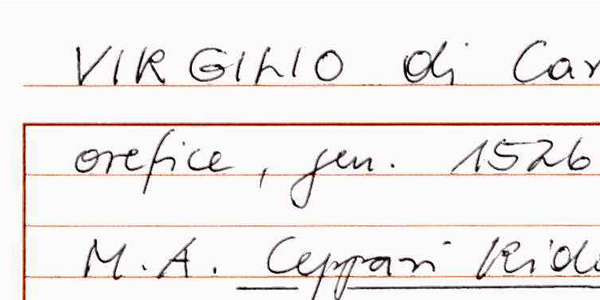 VIRGILIO di Car
orefice, gen. 1526
M.A. Ceppari Rido